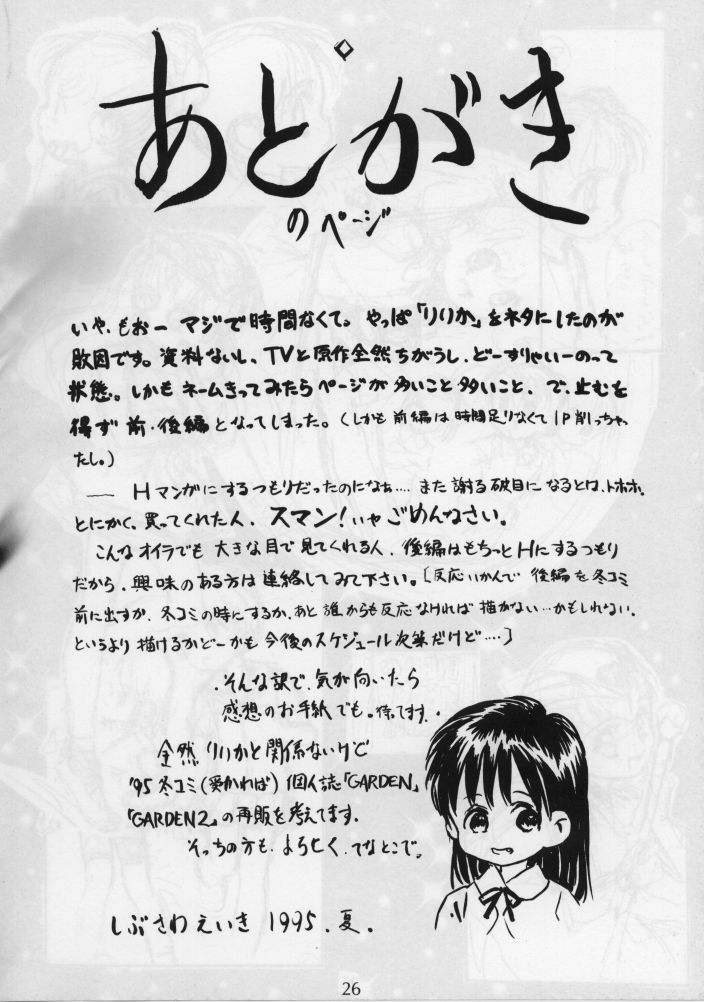 あとがき
のページ
いや、もおー マジで時間なくて。やっぱ「りりか」をネタにしたのが
敗因です。資料ないし、TVと原作全然ちがうし、どーすりゃいーのって
状態。しかもネームきってみたらページが多いこと多いこと、で、止むを
得ず前・後編となってしまった。(しかも前編は時間足りなくて1P削っちゃっ
たし。)
── Hマンガにするつもりだったのになぁ‥‥ また謝る破目になるとは、トホホ。
とにかく、買ってくれた人、スマン!いやごめんなさい。
こんなオイラでも大きな目で見てくれる人、後編はもちっとHにするつもり
だから、興味のある方は連絡してみて下さい。[反応いかんで後編を冬コミ
前に出すか、冬コミの時にするか、あと誰からも反応なければ描かない…かもしれない、
というより描けるかどーかも今後のスケジュール次第だけど‥‥]
そんな訳で、気が向いたら
感想のお手紙でも。待てます。
全然りりかと関係ないけど
'95冬コミ(受かれば)個人誌「GARDEN」
「GARDEN2」の再販を考えてます。
そっちの方も、よろしく、てなとこで。
しぶさわえいき 1995.夏.
26